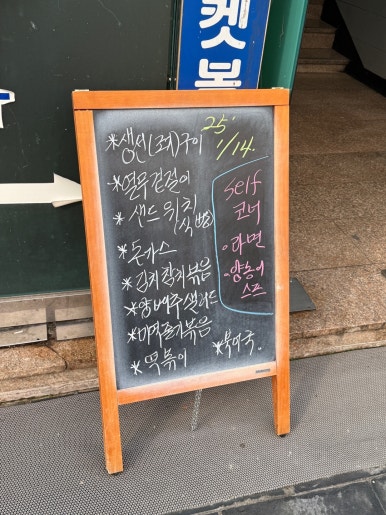 켓
25'
1/14.
*생선(조기)구이
*열무겉절이
*샌드위치
(식빵)
*돈가스
*김치참치볶음
*양배추샐러드
*미역줄기볶음
*떡볶이
*북어국.
self
코너
라면
스프